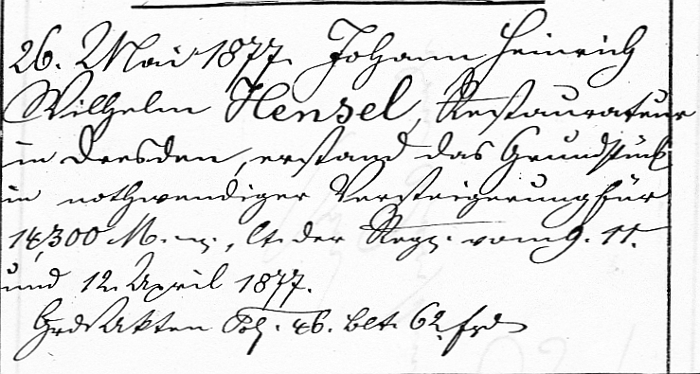 26. Mai 1877. Johann Heinrich
Wilhelm Hensel, Restaurateur
in Dresden, erstand das Grundstück
in nothwendiger Versteigerung für
18,300 M. , lt. der Regg. vom 9. 11.
und 12. April 1877.
GrdsAkten Bl. 62